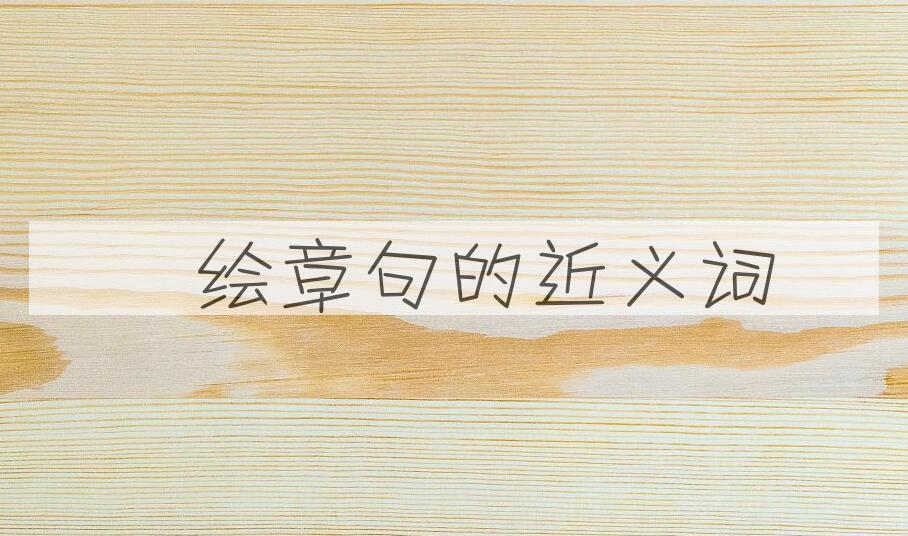 绘章句的近义词